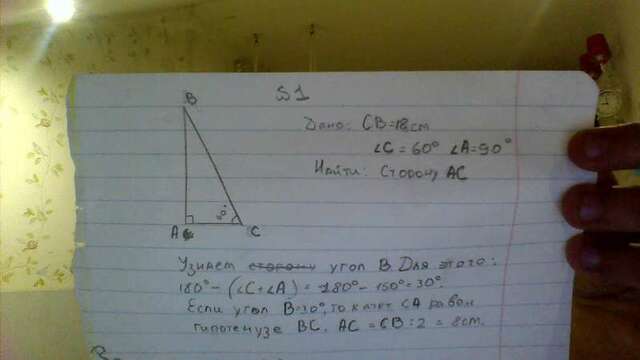 №1
B
Дано: CB=18см
∠C = 60° ∠A=90°
Найти: Сторону AC
A C
Узнаем угол B. Для этого:
180° - (∠C+∠A) = 180° - 150° = 30°.
Если угол B=30°, то катет CA равен
гипотенузе BC. AC = CB : 2 = 8см.